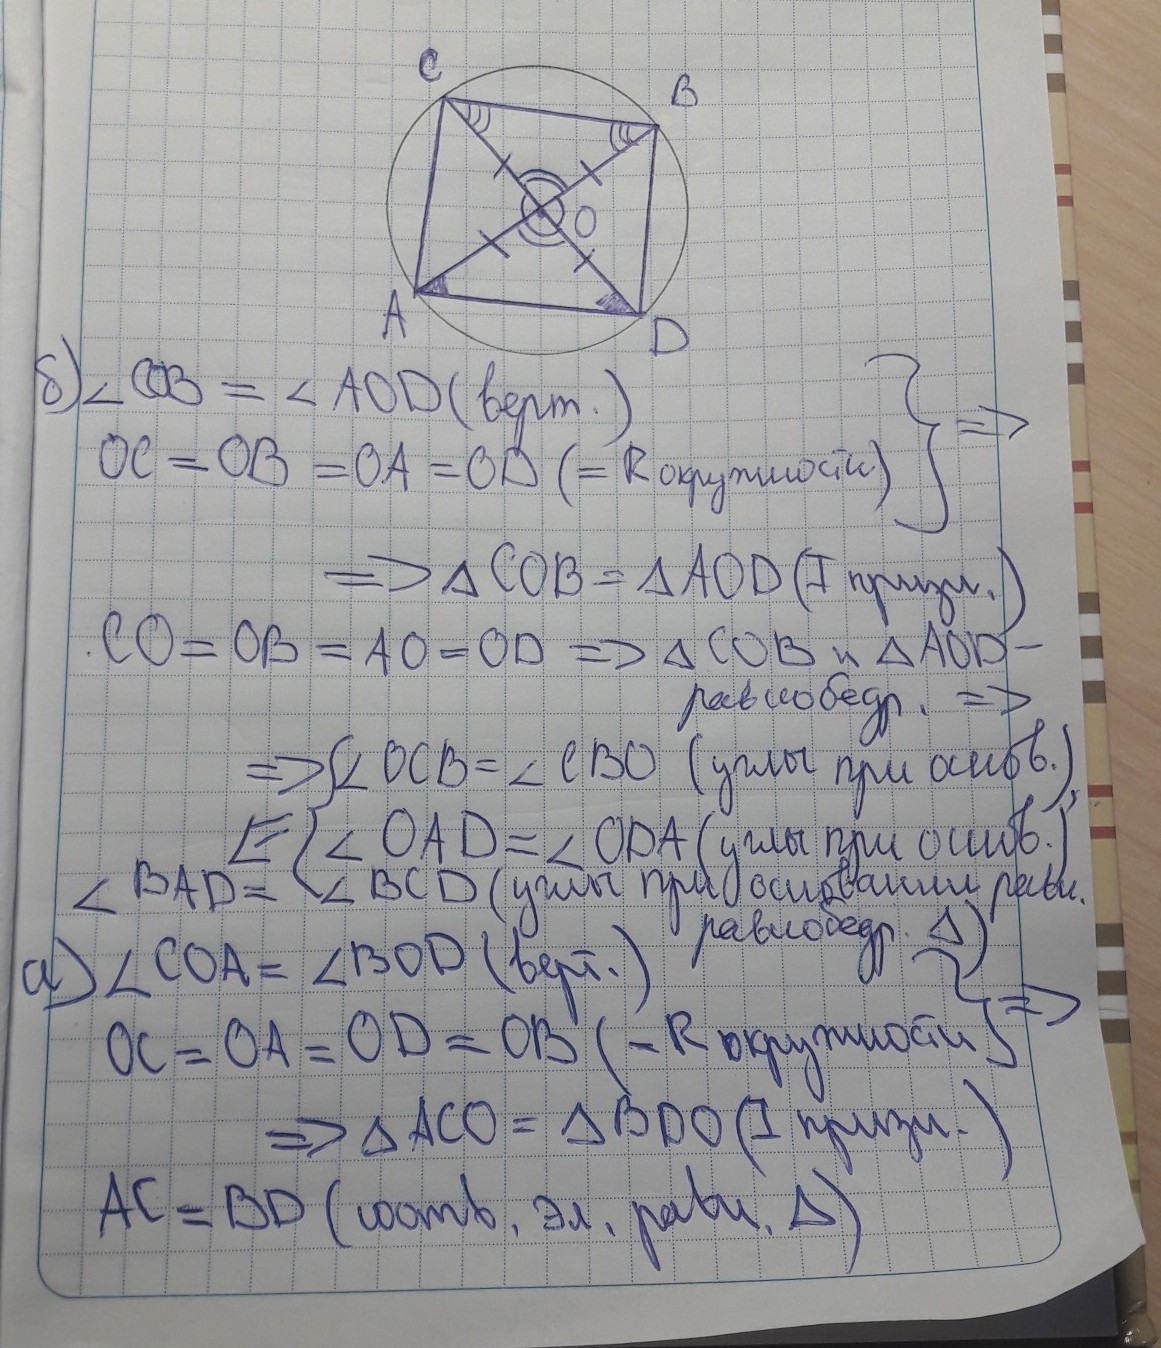 C
B
O
A
D
б) ∠COB = ∠AOD (верт.)
OC = OB = OA = OD (= R окружности) } =>
=> ΔCOB = ΔAOD (I призн.)
CO = OB = AO = OD => ΔCOB и ΔAOD –
равнобедр. =>
=> { ∠OCB = ∠CBO (углы при основ.)
∠OAD = ∠ODA (углы при основ.)
∠BAD = ∠BCD (углы при основании равн.
равнобедр. Δ)
а) ∠COA = ∠BOD (верт.)
OC = OA = OD = OB (= R окружности } =>
=> ΔACO = ΔBDO (I призн.)
AC = BD (соотв. эл. равн. Δ)